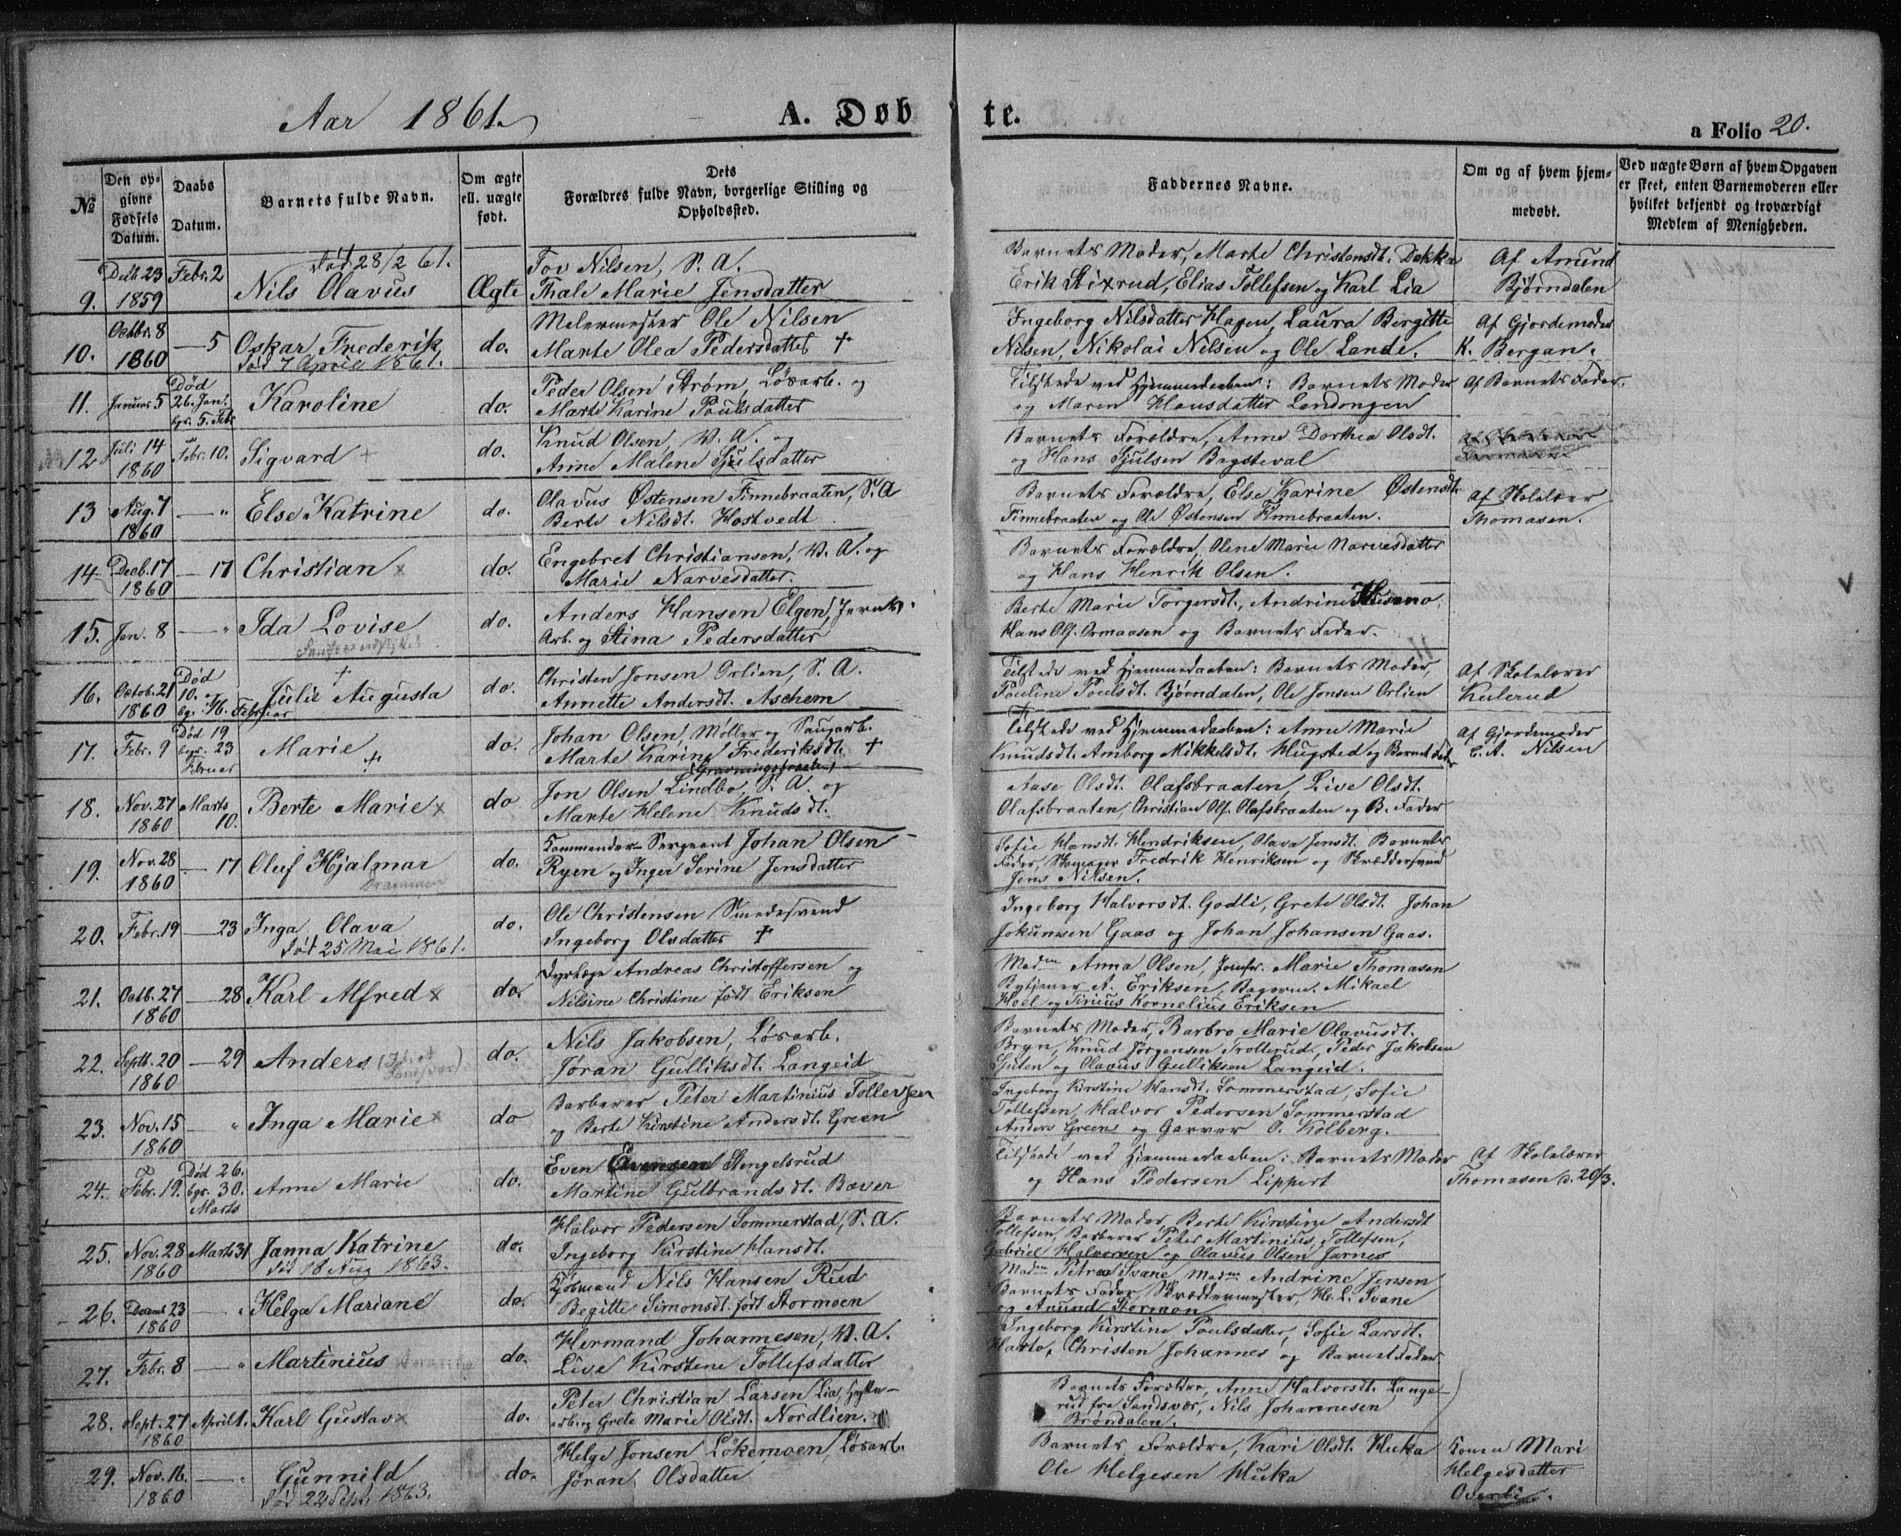 Aar 1861.
A. Døbte.
a Folio 20.
№
Den opgivne Fødsels Datum.
Daabs Datum.
Barnets fulde Navn.
Om ægte ell. uægte født.
Dets Forældres fulde Navn, borgerlige Stilling og Opholdssted.
Faddernes Navne.
Om og af hvem hjemmedøbt.
Ved uægte Børn af hvem Opgaven er skeet, enten Barnemoderen eller hvilket bekjendt og troværdigt Medlem af Menigheden.
9. 23 1859 Febr. 2 død 28/2 61. Nils Olavus Ægte
Tov Nilsen, S. A.
Thale Marie Jensdatter
Barnets Moder, Marte Christensdt. Dokka
Erik Lixrud, Elias Tollefsen og Karl Lia
Af Amund Bjørndalen
10. Octbr. 8 1860 — 5 Oskar Frederik død 7 April 1861. do.
Malermester Ole Nilsen
Marte Olea Pedersdatter +
Ingeborg Nilsdatter Hagen, Laura Bergitte
Nilsen, Nikolai Nilsen og Ole Lande.
Af Gjordemoder K. Bergan.
11. Januar 5 Død 26. Jan. bgr. 5. Febr Karoline do.
Peder Olsen Strøm, Løsarb. og
Marte Karine Poulsdatter
Tilstede ved Hjemmedaaben: Barnets Moder
og Maren Hansdatter Landongen
Af Barnets Fader.
12 Juli 14 1860 Febr. 10. Sigvard + do.
Knud Olsen, V. A. og
Anne Malene Sjulsdatter
Barnets Forældre, Anne Dorthea Olsdt.
og Hans Sjulsen Bagsteval
13 Aug. 7 1860 — " Else Katrine do.
Olavus Østensen Finnebraaten, S. A
Berte Nilsdt. Hostvedt
Barnets Forældre, Else Karine Østensdt.
Finnebraaten og Ole Østensen Finnebraaten.
Af Skolelærer Thomasen.
14. Decb. 17 1860 — 17 Christian x do.
Engebret Christiansen, V. A. og
Marie Narvesdatter.
Barnets Forældre, Olene Marie Narvesdatter
og Hans Henrik Olsen.
15. Jan. 8 — " Ida Lovise do.
Anders Hansen Elgen, Jernv.
Arb. og Stina Pedersdatter
Berte Marie Torgersdt., Andrine
Hans Ols. Ormaasen og Barnets Fader.
16. Octob. 21 1860 Død 10. bgr. 16. Februar + Julie Augusta do.
Christen Jonsen Orlien, S. A.
Annette Andersdt. Aschem
Tilstede ved Hjemmedaaben: Barnets Moder,
Pauline Poulsdt. Bjørndalen, Ole Jonsen Orlien
Af Skolelærer Kulerud
17. Febr. 9 Død 19 bgr. 23 Februar Marie + do.
Johan Olsen, Møller og Saugarb.
Marte Karine Frederiksdt. +
Tilstede ved Hjemmedaaben: Anne Marie
Knudsdt. Amborg Mikkelsdt. Hugsted og Barnet Fader
Af Gjordemoder C. A. Nilsen
18. Nov. 27 1860 Marts 10. Berte Marie x do
Jon Olsen Lindbo, S. A. og
Marte Helene Knudsdt.
Aase Olsdt. Olafsbraaten, Live Olsdt.
Olafsbraaten, Christian Ols. Olafsbraaten og B. Fader
19. Nov. 28 1860 — 17 Oluf Hjalmar Drammen do.
Kommandeer-Sergeant Johan Olsen
Ryen og Inger Serine Jensdatter
Sofie Hansdt. Hendriksen, Olava Jensdt. Barnets
Fader, Skomager Fredrik Henriksen og Skræddersvend
Jens Nilsen.
20. Febr. 19 — 23 Inga Olava død 25 Mai 1861. do.
Ole Christensen Smedesvend
Ingeborg Olsdatter +
Ingeborg Halvorsdt. Godli, Grete Olsdt. Johan
Jokumsen Gaas og Johan Johansen Gaas.
21. Octb. 27 1860 — 28 Karl Alfred x do.
Dyrlæge Andreas Christoffersen og
Nilsine Christine født Eriksen
Madm Anna Olsen, Jomfr. Marie Thomasen
Bytjener A. Eriksen, Bagersv. Mikael
Hoel og Tinius Kornelius Eriksen
22. Septb. 20 1860 — 29 Anders do.
Nils Jakobsen, Løsarb.
Jøran Gulliksdt. Langeid
Barnets Moder, Barbro Marie Olavusdt.
Bryn, Knud Jørgensen Trollerud, Peder Jakobsen
Sjuten og Olavus Gulliksen Langeid.
23. Nov. 15 1860 " Inga Marie x do
Barberer Peter Martinius Tollefsen
og Berte Kirstine Andersdt. Green
Ingeborg Kirstine Hansdt. Sommerstad, Sofie
Tollefsen, Halvor Pedersen Sommerstad
Anders Green og Garver O. Kolberg.
24. Febr. 19. Død 26. bgr. 30. Marts Anne Marie do.
Even Evensen Stengelsrud
Martine Gulbrandsdt. Bæver
Tilstede ved Hjemmedaaben: Barnets Moder
og Hans Pedersen Lippert
Af Skolelærer Thomasen d. 20/3.
25. Nov. 28 1860 Marts 31 Janna Katrine død 18 Aug 1863. do.
Halvor Pedersen Sommerstad, S. A.
Ingeborg Kirstine Hansdt.
Barnets Moder Berte Kirstine Andersdt
Tollefsen, Barberer Peter Martinius Tollefsen,
Gabriel Halvorsen og Olavus Olsen Jarnes
26. Decemb 23 1860 — " Helga Mariane do.
Kjøbmand Nils Hansen Rud
Begitte Simonsdt. født Stormoen
Madm Petrea Svane, Madm Andrine Jensen
Barnets Fader, Skræddermester, H. L. Svane
og Anund Stormoen
27. Febr. 8 — " Martinius do.
Hermand Johannesen, V. A.
Live Kirstene Tollefsdatter
Ingeborg Kirstine Poulsdatter, Sofie Larsdt.
Hasto, Christen Johannes og Barnet Fader
28. Sept. 27 1860 April 1. Karl Gustav x do.
Peter Christian Larsen Lia, Hytte-
arb. og Grete Marie Olsdt. Nordlien.
Barnets Forældre, Anne Halvorsdt. Lange-
rud fra Sandsvær, Nils Johannesen
Brøndalen.
29. Nov. 16. 1860 — " Gunnild død 22 Sept. 1863. do.
Helge Jonsen Løkemoen, Løsarb.
Jøran Olsdatter
Barnets Forældre, Kari Olsdt. Huka
Ole Helgesen Huka
Konen Mari Helgesdatter